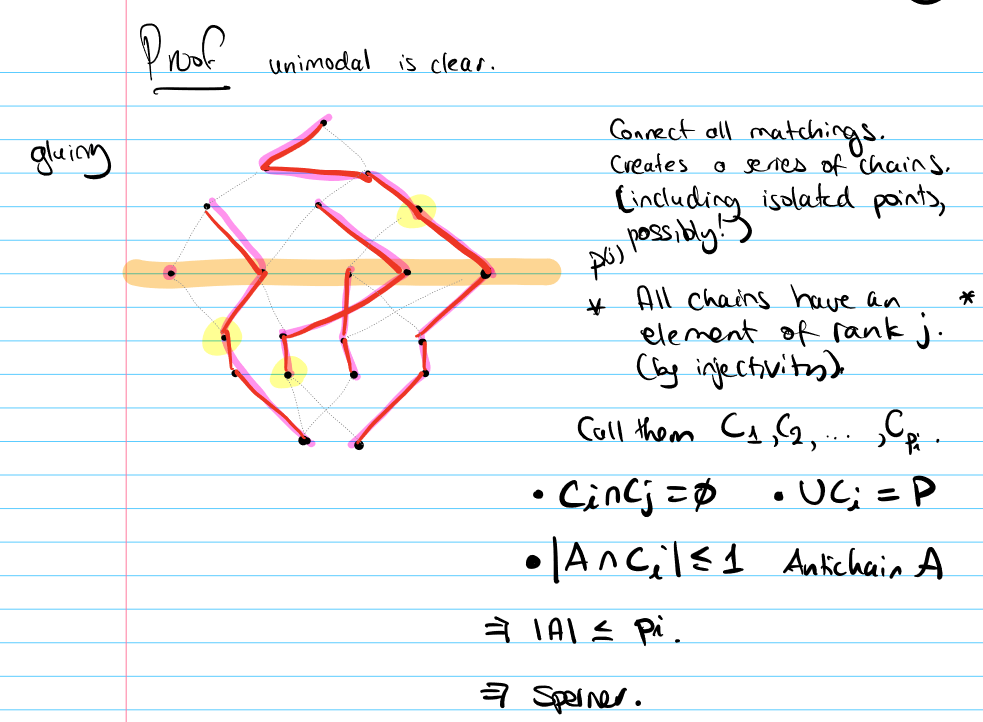 Proof unimodal is clear.
gluing
Connect all matchings.
Creates a series of chains.
(including isolated points,
possibly!)
* All chains have an *
element of rank j.
(by injectivity).
Call them C₁, C₂, ... , Cₚᵢ.
• Ci∩Cj = ∅ • ∪Ci = P
• |A ∩ Ci| ≤ 1 Antichain A
⇒ |A| ≤ pi.
⇒ Sperner.